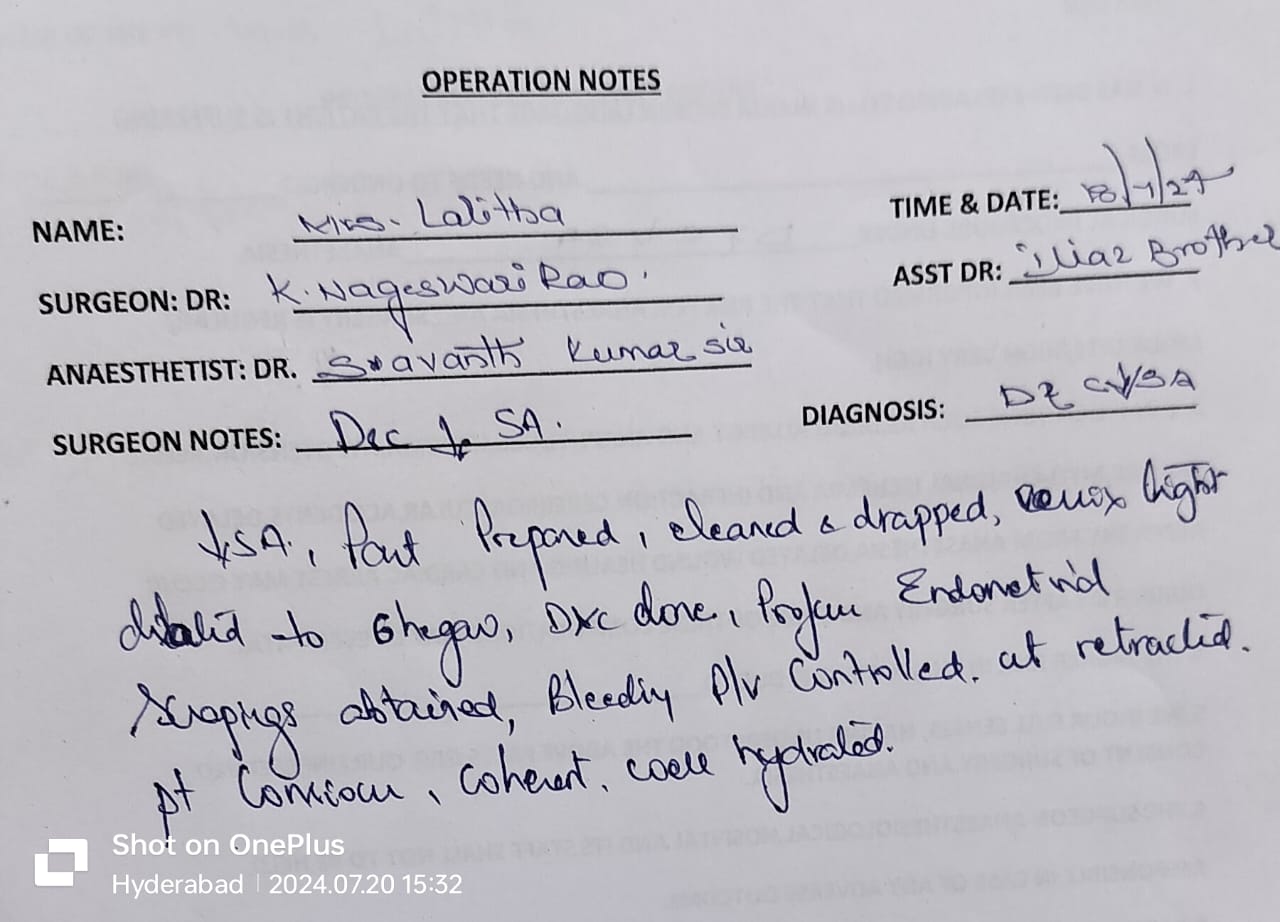 OPERATION NOTES
NAME: Mrs. Lalitha
TIME & DATE: 18/1/24
SURGEON: DR: K. Nageswari Rao.
ASST DR: iliaz Brother
ANAESTHETIST: DR. Sravanth Kumar sir
DIAGNOSIS:
SURGEON NOTES: D&C ↓ SA.
↓SA, Part Prepared, cleaned & drapped, light
to 6hegar, D&C done, Profuse Endometrial
Scrapings obtained, Bleeding P/V Controlled. retracted.
pt Conscious, Coherent, hydrated.
Shot on OnePlus
Hyderabad | 2024.07.20 15:32